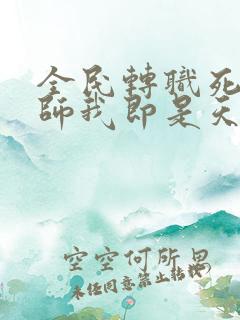 全民轉職死
師我即是天
空空何所思
未经同意禁止转载